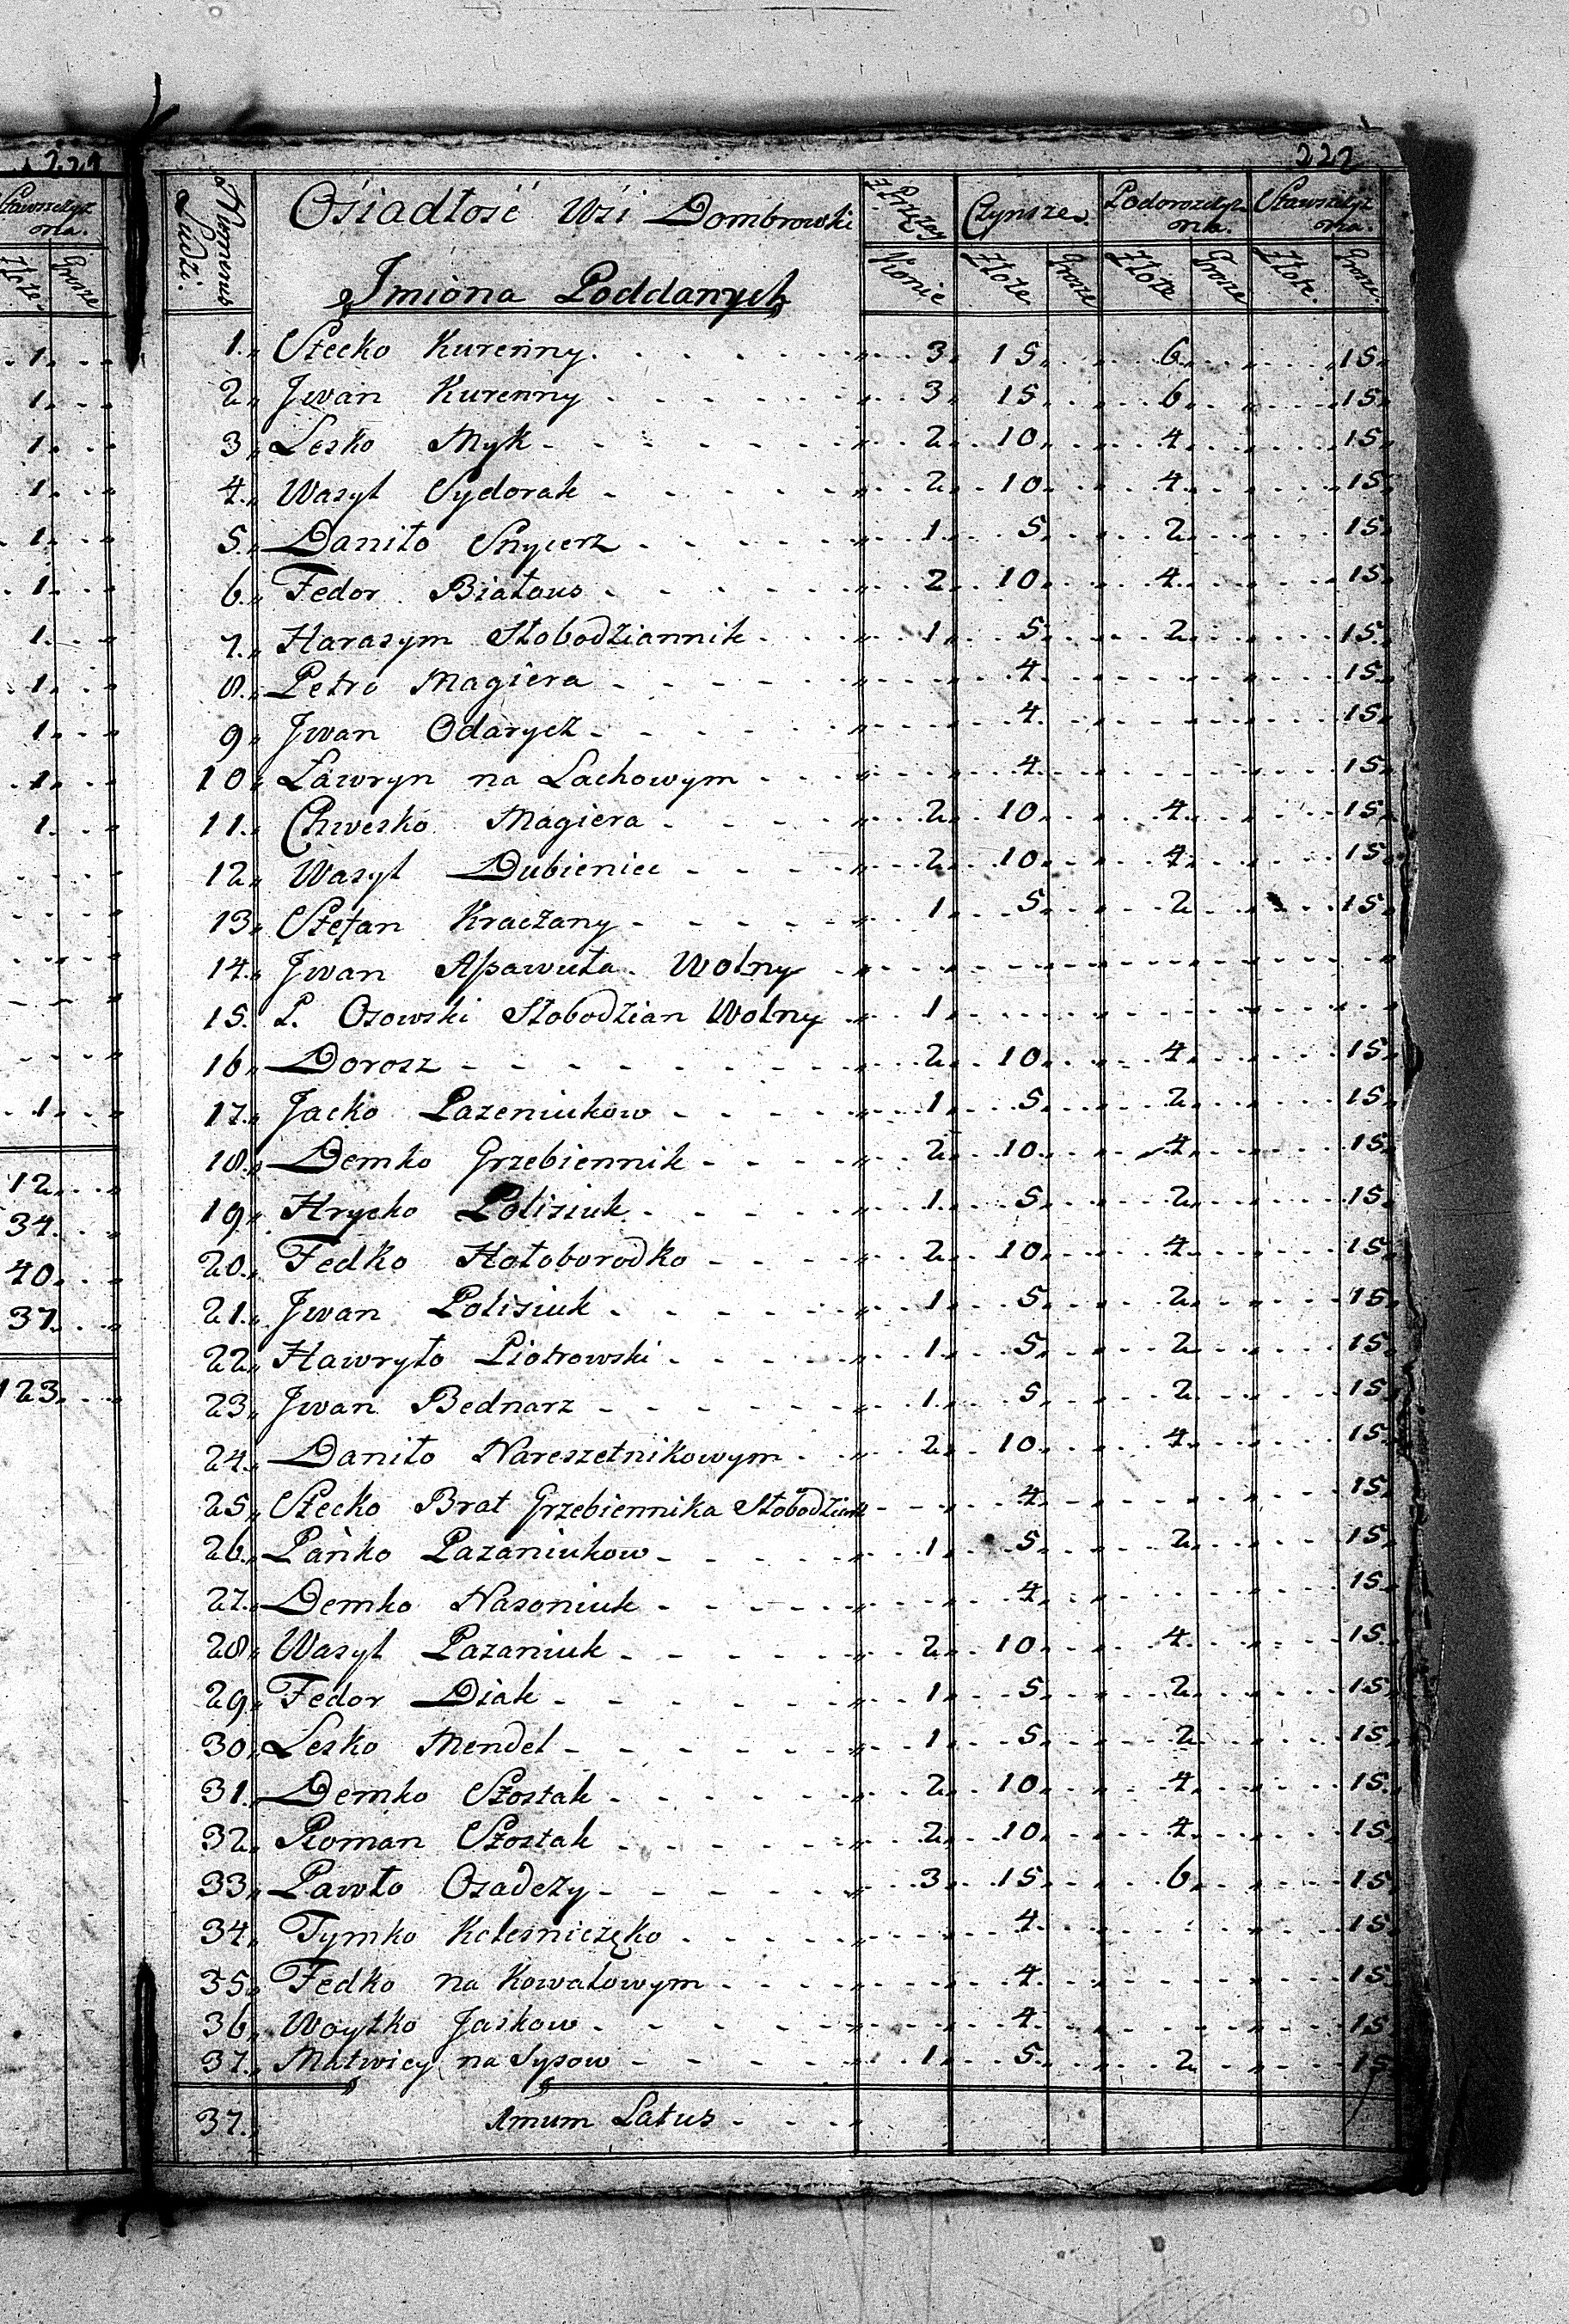 221
Stawszczyzna.
Złote. Grosze
1
1
1
1
1
1
1
1
1
1
1
1
12
34
40
37
123
222
Numerus Ludzi. Osiadłość Wsi Dombrowski Czynsze. Podoroszczyzna. Stawszczyzna.
Imiona Poddanych Konie Złote Grosze Złote Grosze Złote. Grosze.
1. Stecko Kurenny 3 15 6 15
2. Jwan Kurenny 3 15 6 15
3. Lesko Myk 2 10 4 15
4. Wasyl Sydorak 2 10 4 15
5. Daniło Snycerz 1 5 2 15
6. Fedor Białous 2 10 4 15
7. Harasym Słobodziannik 1 5 2 15
8. Petro Magiera 4 15
9. Jwan Odarycz 4 15
10. Ławryn na Lachowym 4 15
11. Chwesko Magiera 2 10 4 15
12. Wasyl Dubieniec 2 10 4 15
13. Stefan Kraczany 1 5 2 15
14. Jwan Assawuła Wolny
15. P. Osowski Słobodzian Wolny 1
16. Dorosz 2 10 4 15
17. Jacko Pazeniukow 1 5 2 15
18. Demko Grzebiennik 2 10 4 15
19. Hrycko Polisiuk 1 5 2 15
20. Fedko Hołoborodko 2 10 4 15
21. Jwan Polisiuk 1 5 2 15
22. Hawryło Piotrowski 1 5 2 15
23. Jwan Bednarz 1 5 2 15
24. Daniło Nareszetnikowym 2 10 4 15
25. Stecko Brat Grzebiennika Słobodzian 4 15
26. Pańko Pazaniukow 1 5 2 15
27. Demko Nasoniuk 4 15
28. Wasyl Pazaniuk 2 10 4 15
29. Fedor Diak 1 5 2 15
30. Lesko Mendel 1 5 2 15
31. Demko Szostak 2 10 4 15
32. Roman Szostak 2 10 4 15
33. Pawło Osadczy 3 15 6 15
34. Tymko Kolesniczęko 4 15
35. Fedko na Kowalowym 4 15
36. Woytko Jaskow 4 15
37. Matwiey na Sysow 1 5 2 15
37. 1mum Latus